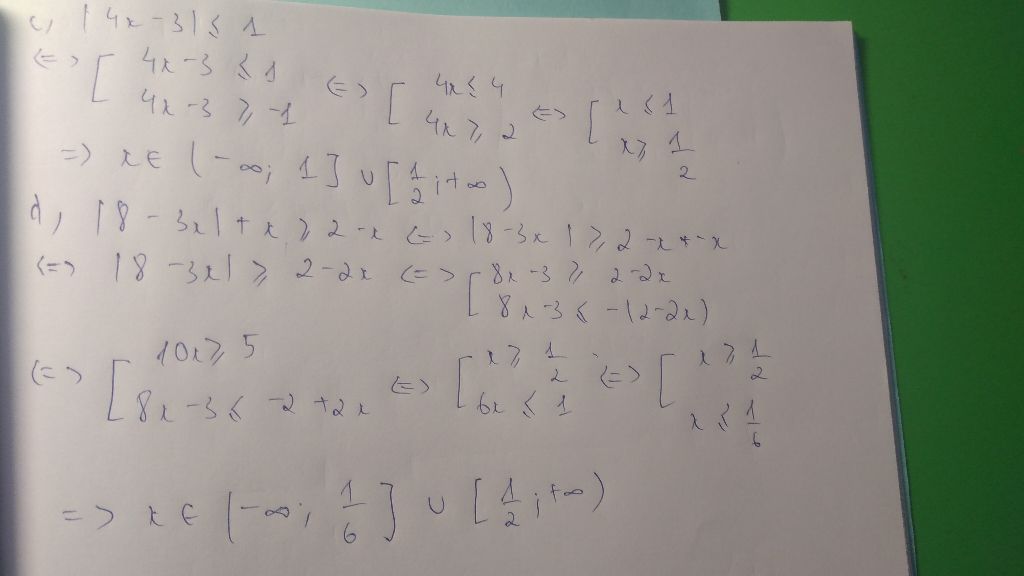 c, |4x - 3| ≤ 1
<=> [ 4x - 3 ≤ 1 <=> [ 4x ≤ 4 <=> [ x ≤ 1
4x - 3 ≥ -1 4x ≥ 2 x ≥ 1/2
=> x ∈ (-∞; 1] ∪ [1/2; +∞)
d, |8 - 3x| + x ≥ 2 - x <=> |8 - 3x| ≥ 2 - x + -x
<=> |8 - 3x| ≥ 2 - 2x <=> [ 8x - 3 ≥ 2 - 2x
8x - 3 ≤ -(2 - 2x)
<=> [ 10x ≥ 5 <=> [ x ≥ 1/2 <=> [ x ≥ 1/2
8x - 3 ≤ -2 + 2x 6x ≤ 1 x ≤ 1/6
=> x ∈ (-∞; 1/6] ∪ [1/2; +∞)